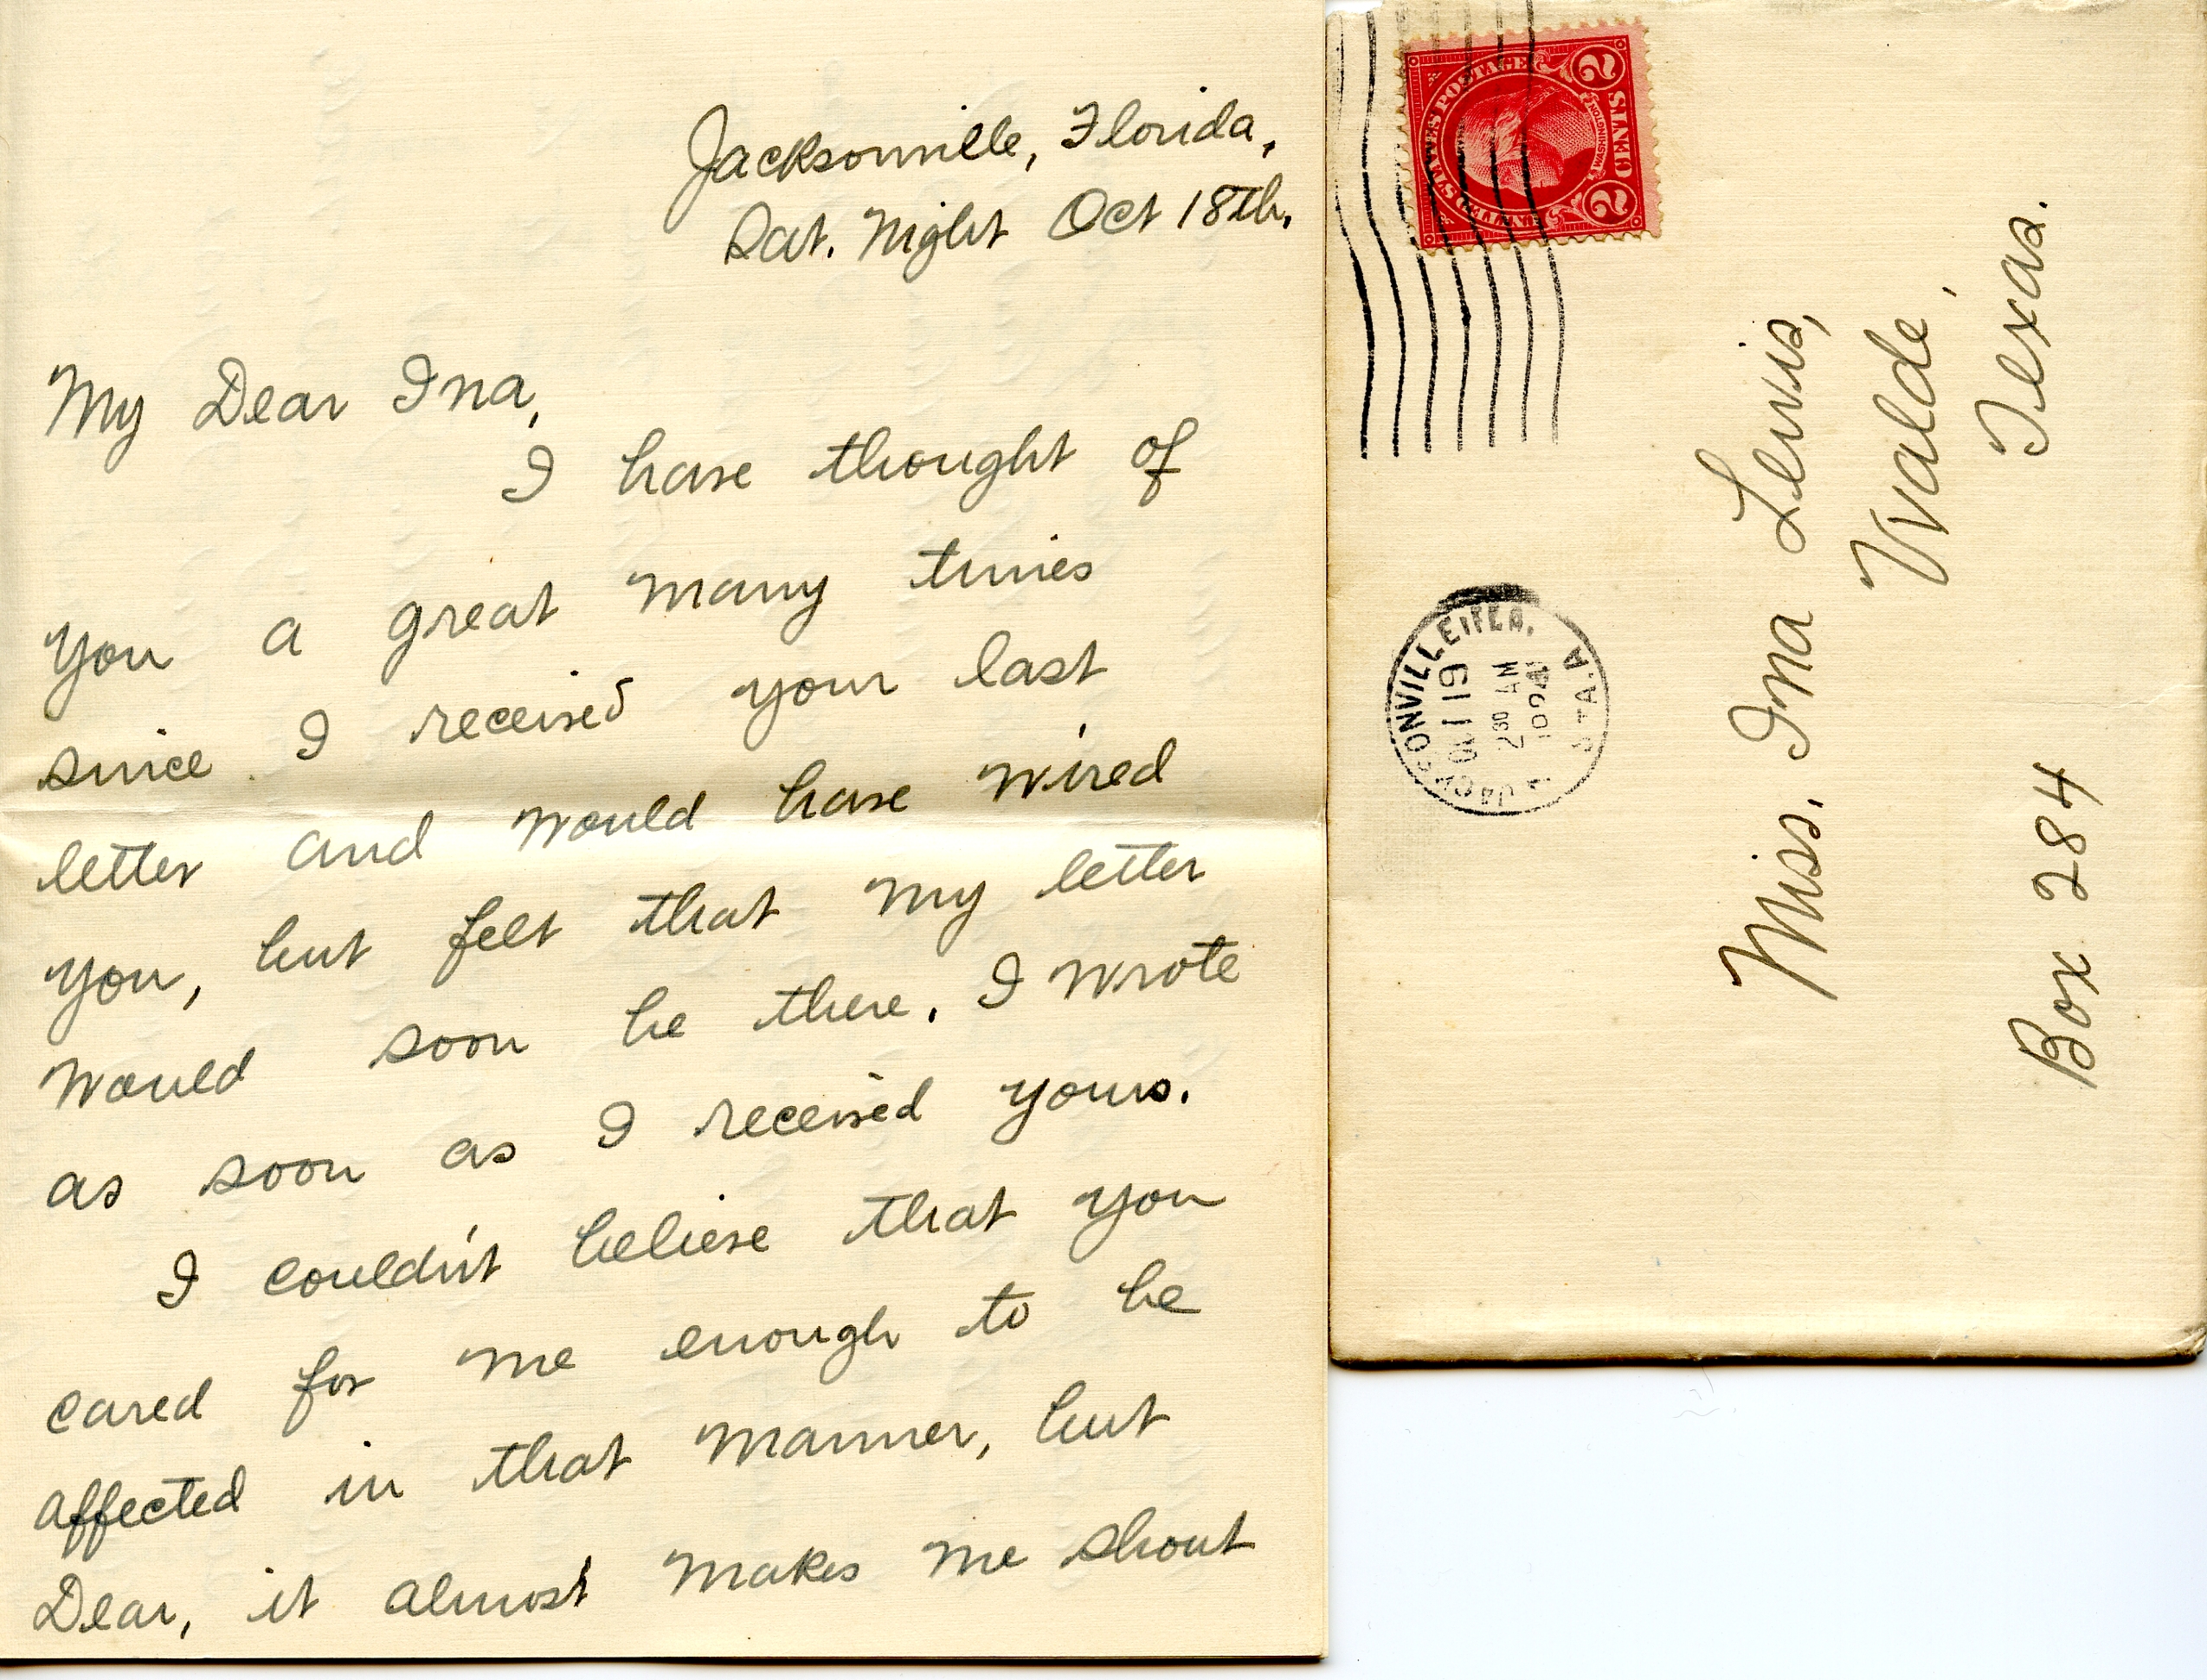 Jacksonville, Florida,
Sat. Night Oct 18th.
My Dear Ina,
I have thought of
you a great many times
since I received your last
letter and would have wired
you, but felt that my letter
would soon be there. I wrote
as soon as I received yours.
I couldn't believe that you
cared for me enough to be
affected in that manner, but
Dear, it almost makes me shout
UNITED STATES POSTAGE
WASHINGTON
2 CENTS 2
JACKSONVILLE, FLA.
OCT 19
2 30 AM
1924
STA. A
Miss. Ina Lewis,
Uvalde,
Texas.
Box 284